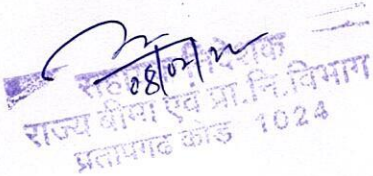 08/02/22
सहायक निदेशक
राज्य बीमा एवं प्रा.नि.विभाग
प्रतापगढ कोड 1024